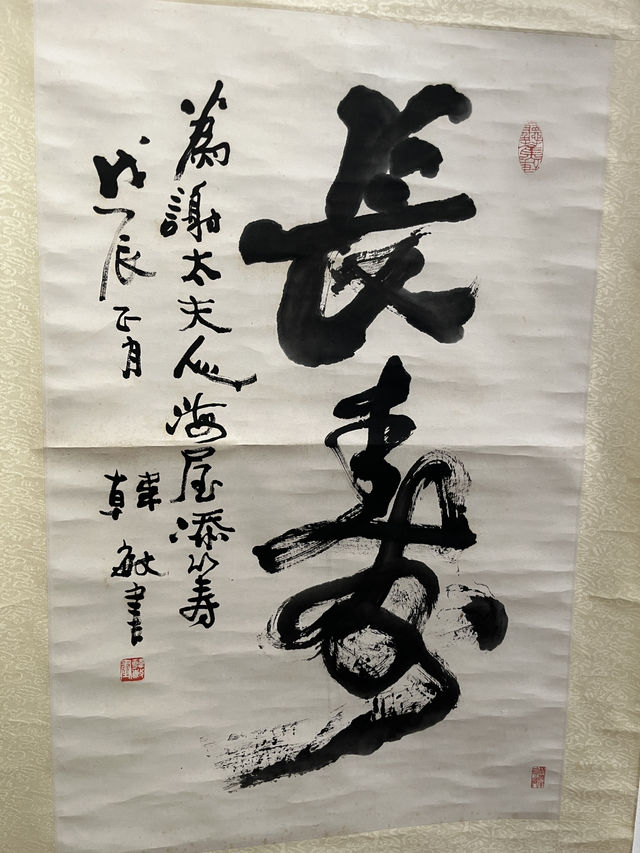 長壽
為謝太夫人海屋添筹
戊辰正月 韓敏書